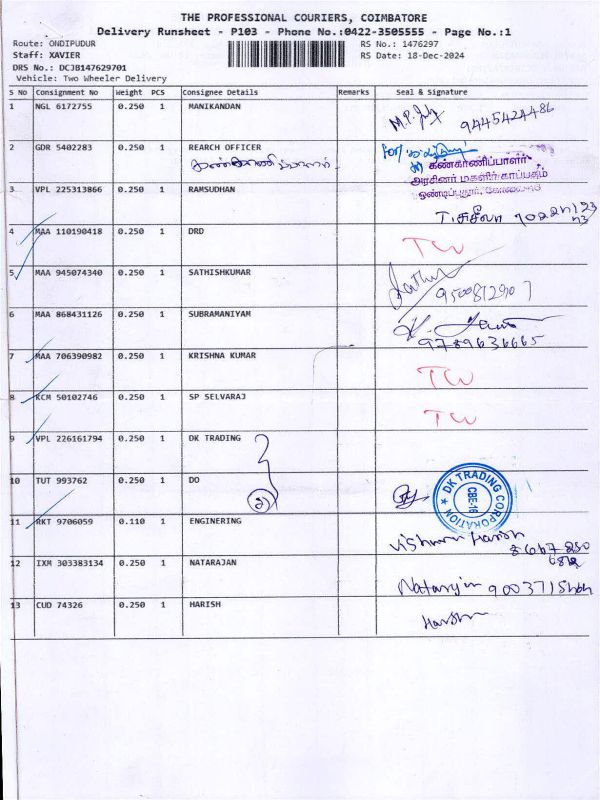 THE PROFESSIONAL COURIERS, COIMBATORE
Delivery Runsheet - P103 - Phone No.:0422-3505555 - Page No.:1
Route: ONDIPUDUR RS No.: 1476297
Staff: XAVIER RS Date: 18-Dec-2024
DRS No.: DCJB147629701
Vehicle: Two Wheeler Delivery
S No Consignment No Weight PCS Consignee Details Remarks Seal & Signature
1 NGL 6172755 0.250 1 MANIKANDAN 9445424486
2 GDR 5402283 0.250 1 REARCH OFFICER
கண்காணிப்பாளர்
அரசினர் மகளிர் காப்பகம்
3 VPL 225313866 0.250 1 RAMSUDHAN
4 MAA 110190418 0.250 1 DRD TW
5 MAA 945074340 0.250 1 SATHISHKUMAR
6 MAA 868431126 0.250 1 SUBRAMANIYAM
9789636665
7 MAA 706390982 0.250 1 KRISHNA KUMAR TW
8 KCM 50102746 0.250 1 SP SELVARAJ TW
9 VPL 226161794 0.250 1 DK TRADING
10 TUT 993762 0.250 1 DO DK TRADING CORPORATION CBE-16
11 RKT 9706059 0.110 1 ENGINERING
12 IXM 303383134 0.250 1 NATARAJAN
13 CUD 74326 0.250 1 HARISH